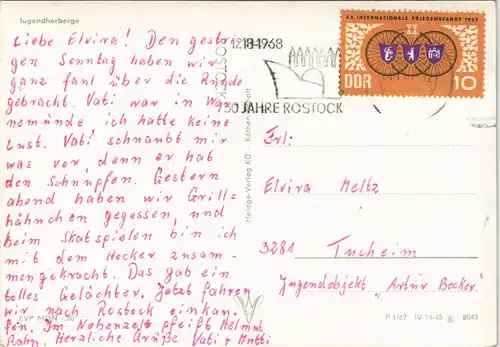 Jugendherberge
Liebe Elvira! Den gestri-
gen Sonntag haben wir
ganz faul über die Runde
gebracht. Vati war in War
nemünde ich hatte keine
Lust. Vati schnaubt mir
was vor, denn er hat
den Schnupfen. Gestern
abend haben wir Grill-
hähnchen gegessen, und
beim Skatspielen bin ich
mit dem Hocker zusam-
mengekracht. Das gab ein
tolles Gelächter. Jetzt fahren
wir nach Rostock einkau
fen. Im Nebenzelt pfeift Helmut
Rahn. Herzliche Grüße Vati + Mutti
EVP MDN -,20
Heldge-Verlag KG Köthen-Anhalt
ROSTOCK
1968
750 JAHRE ROSTOCK
XX. INTERNATIONALE FRIEDENSFAHRT 1967
DDR
10
Frl.
Elvira Meltz
3281 Tucheim
Jugendobjekt „Artur Becker"
P 1/67 IV-14-45 8045